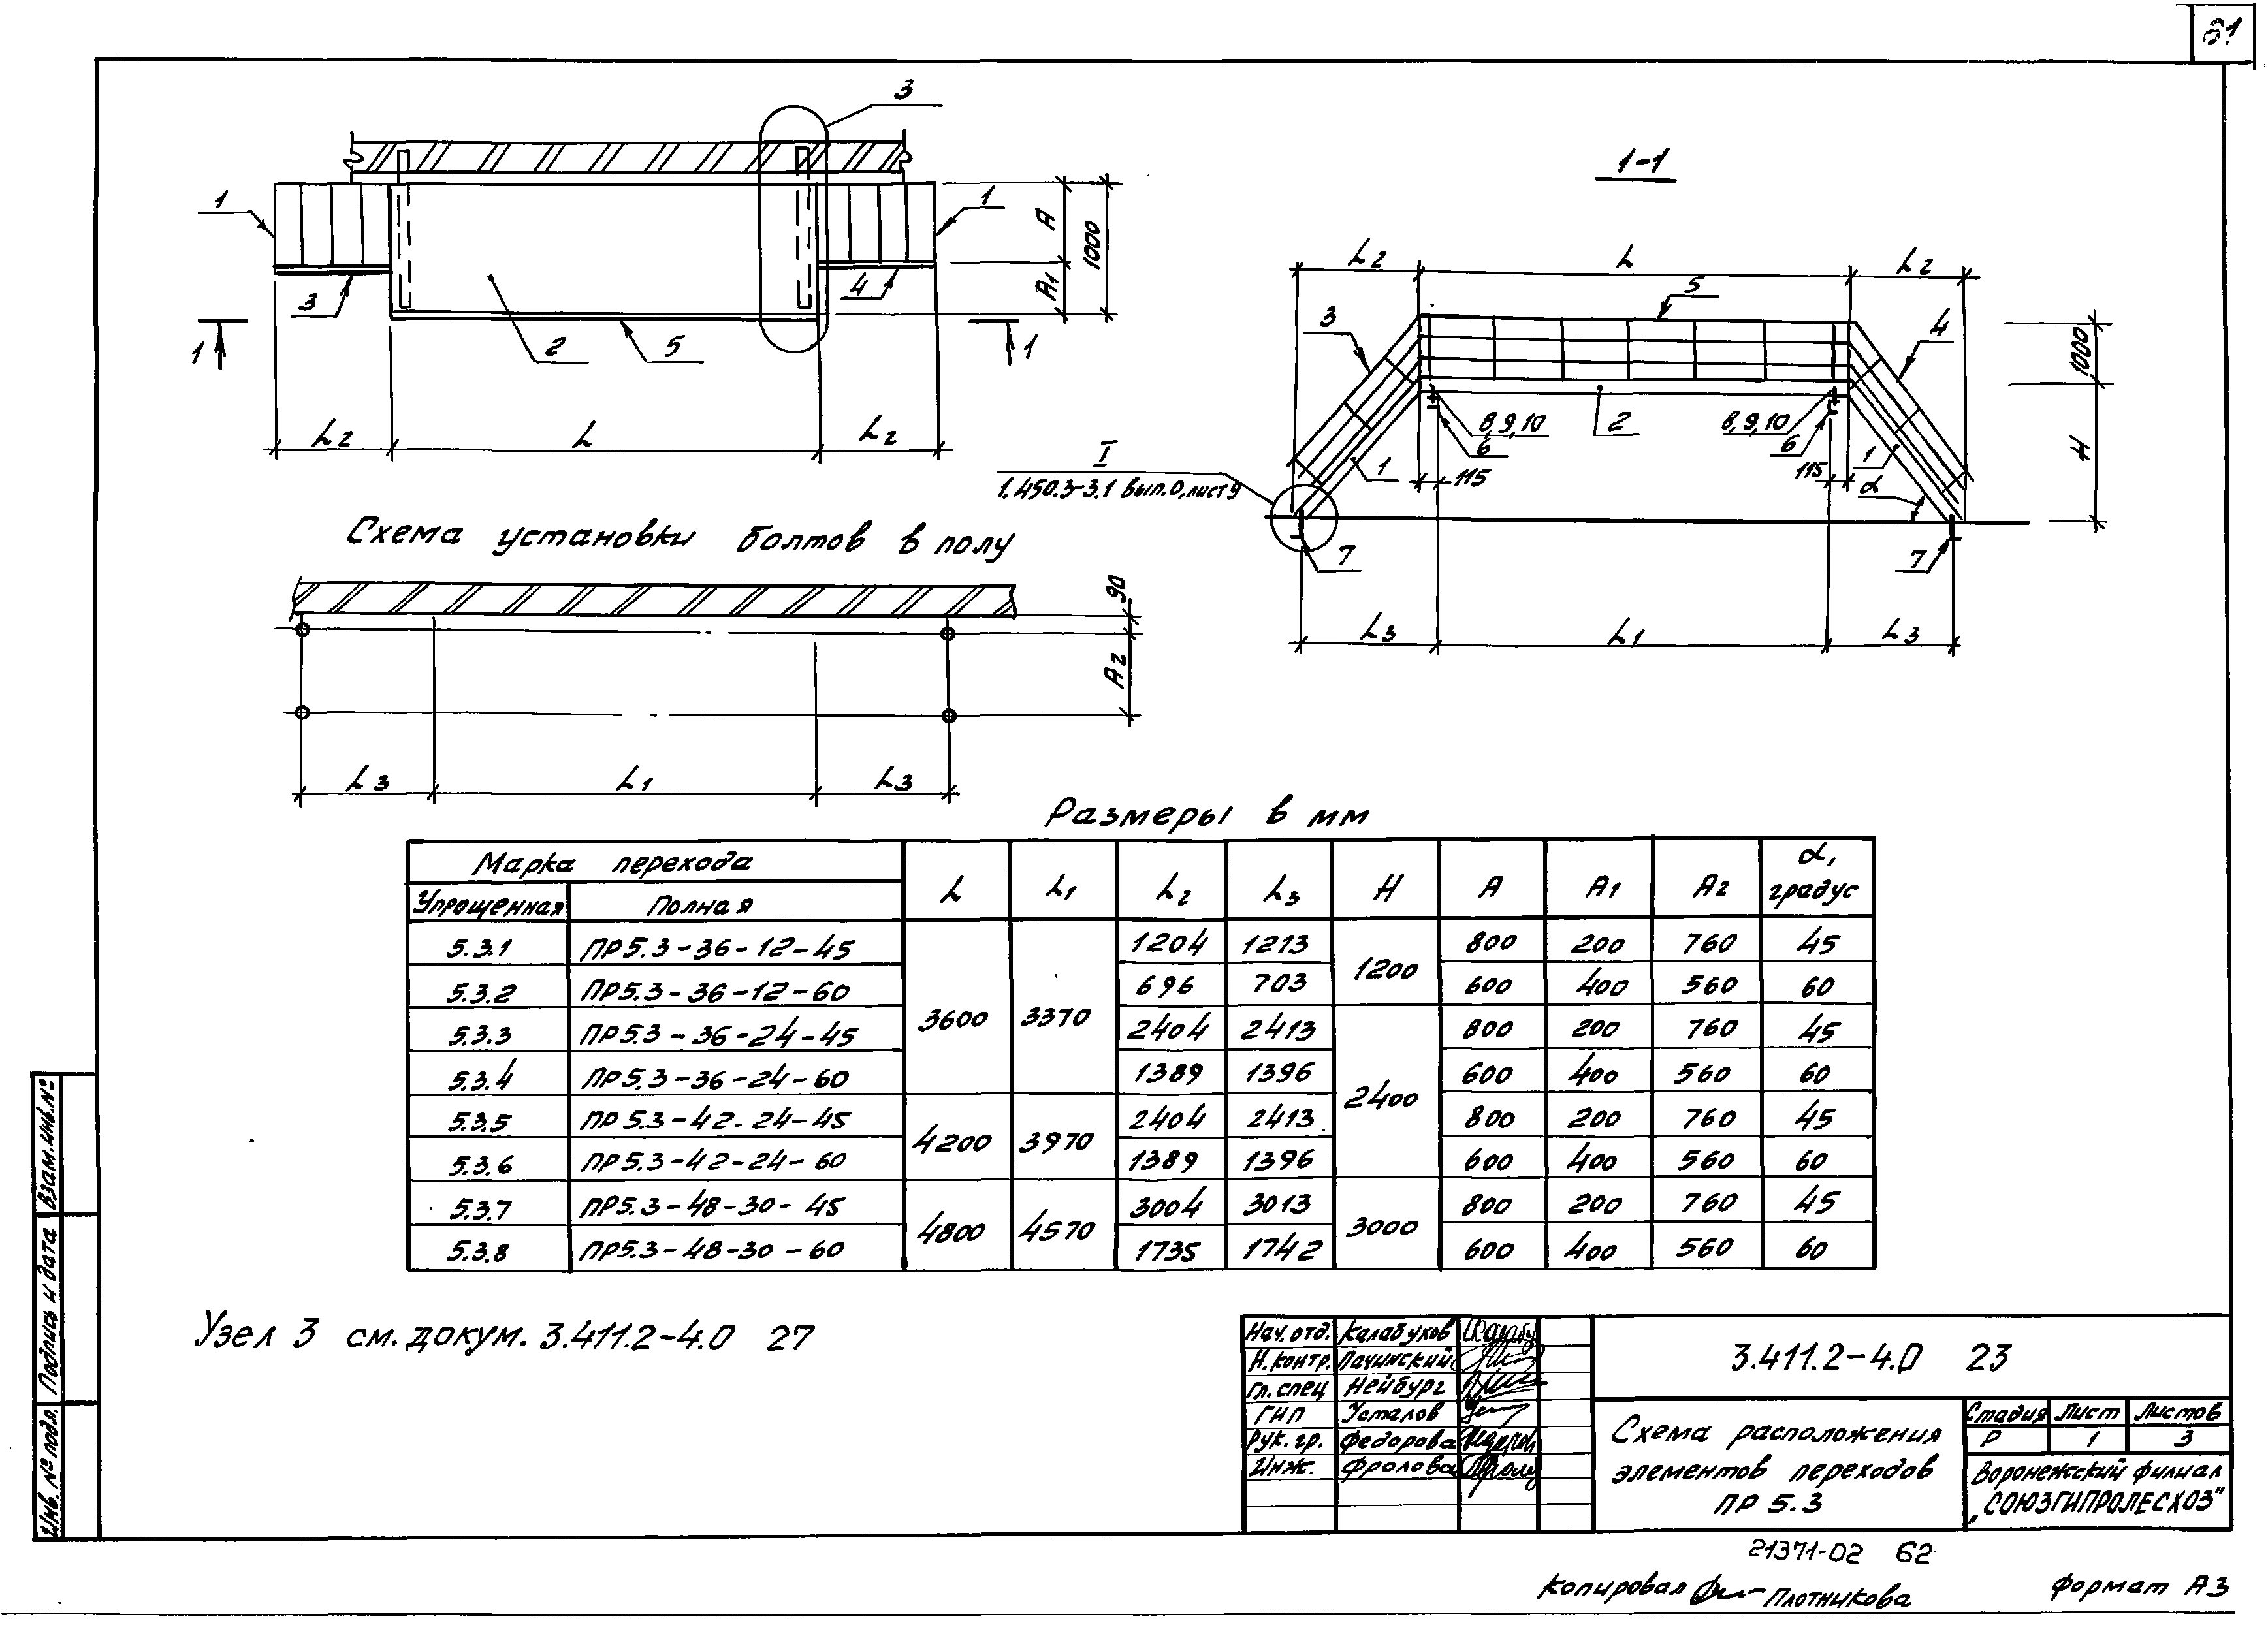 61
3
1
1
A
A1
1000
3
4
2
5
1
1
L2
L
L2
1-1
L2
L
L2
5
3
4
1000
8,9,10
6
2
8,9,10
6
1
115
115
1
α
H
I
1.450.3-3.1 вып.0, лист 9
7
7
L3
L1
L3
Схема установки болтов в полу
90
A2
L3
L1
L3
Размеры в мм
Марка перехода
Упрощенная Полная L L1 L2 L3 H A A1 A2 α, градус
5.3.1 ПР5.3-36-12-45 3600 3370 1204 1213 1200 800 200 760 45
5.3.2 ПР5.3-36-12-60 696 703 600 400 560 60
5.3.3 ПР5.3-36-24-45 2404 2413 2400 800 200 760 45
5.3.4 ПР5.3-36-24-60 1389 1396 600 400 560 60
5.3.5 ПР5.3-42-24-45 4200 3970 2404 2413 800 200 760 45
5.3.6 ПР5.3-42-24-60 1389 1396 600 400 560 60
5.3.7 ПР5.3-48-30-45 4800 4570 3004 3013 3000 800 200 760 45
5.3.8 ПР5.3-48-30-60 1735 1742 600 400 560 60
Узел 3 см. докум. 3.411.2-4.0 27
Взам.инв.№
Подпись и дата
Инв.№ подл.
Нач. отд. Калабухов
Н.контр. Пачинский
Гл.спец Нейбург
ГИП Усталов
Рук. гр. Федорова
Инж. Фролова
3.411.2-4.0 23
Схема расположения
элементов переходов
ПР 5.3
Стадия Лист Листов
Р 1 3
Воронежский филиал
„СОЮЗГИПРОЛЕСХОЗ"
21371-02 62
Копировал Плотникова
Формат А3